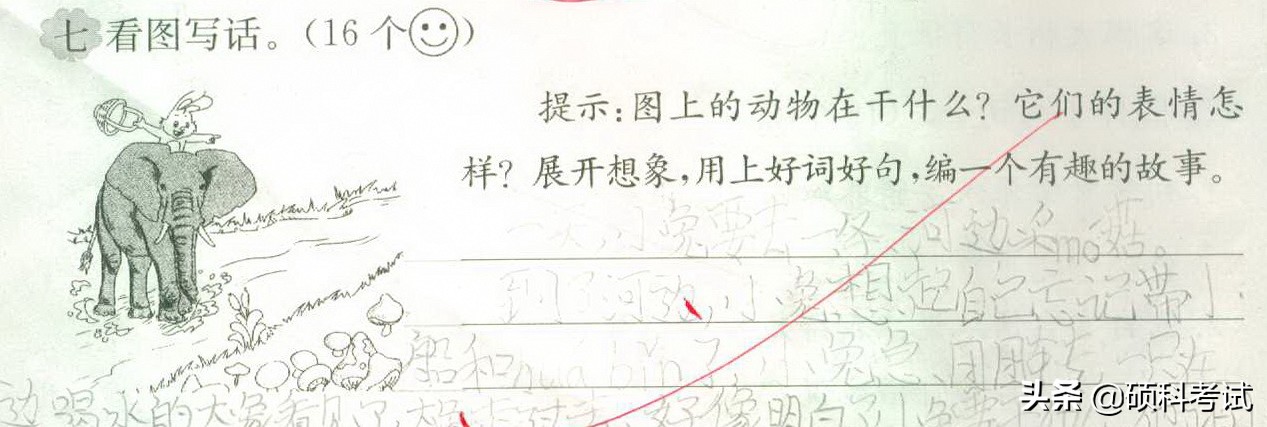 七 看图写话。(16 个)
提示:图上的动物在干什么? 它们的表情怎
样? 展开想象,用上好词好句,编一个有趣的故事。
一天,小兔要去一条河边采mó菇。
到了河边,小兔想起自己忘记带小
船和huá
边喝水的大象看见了,
好像明白了小兔
头条 @硕科考试